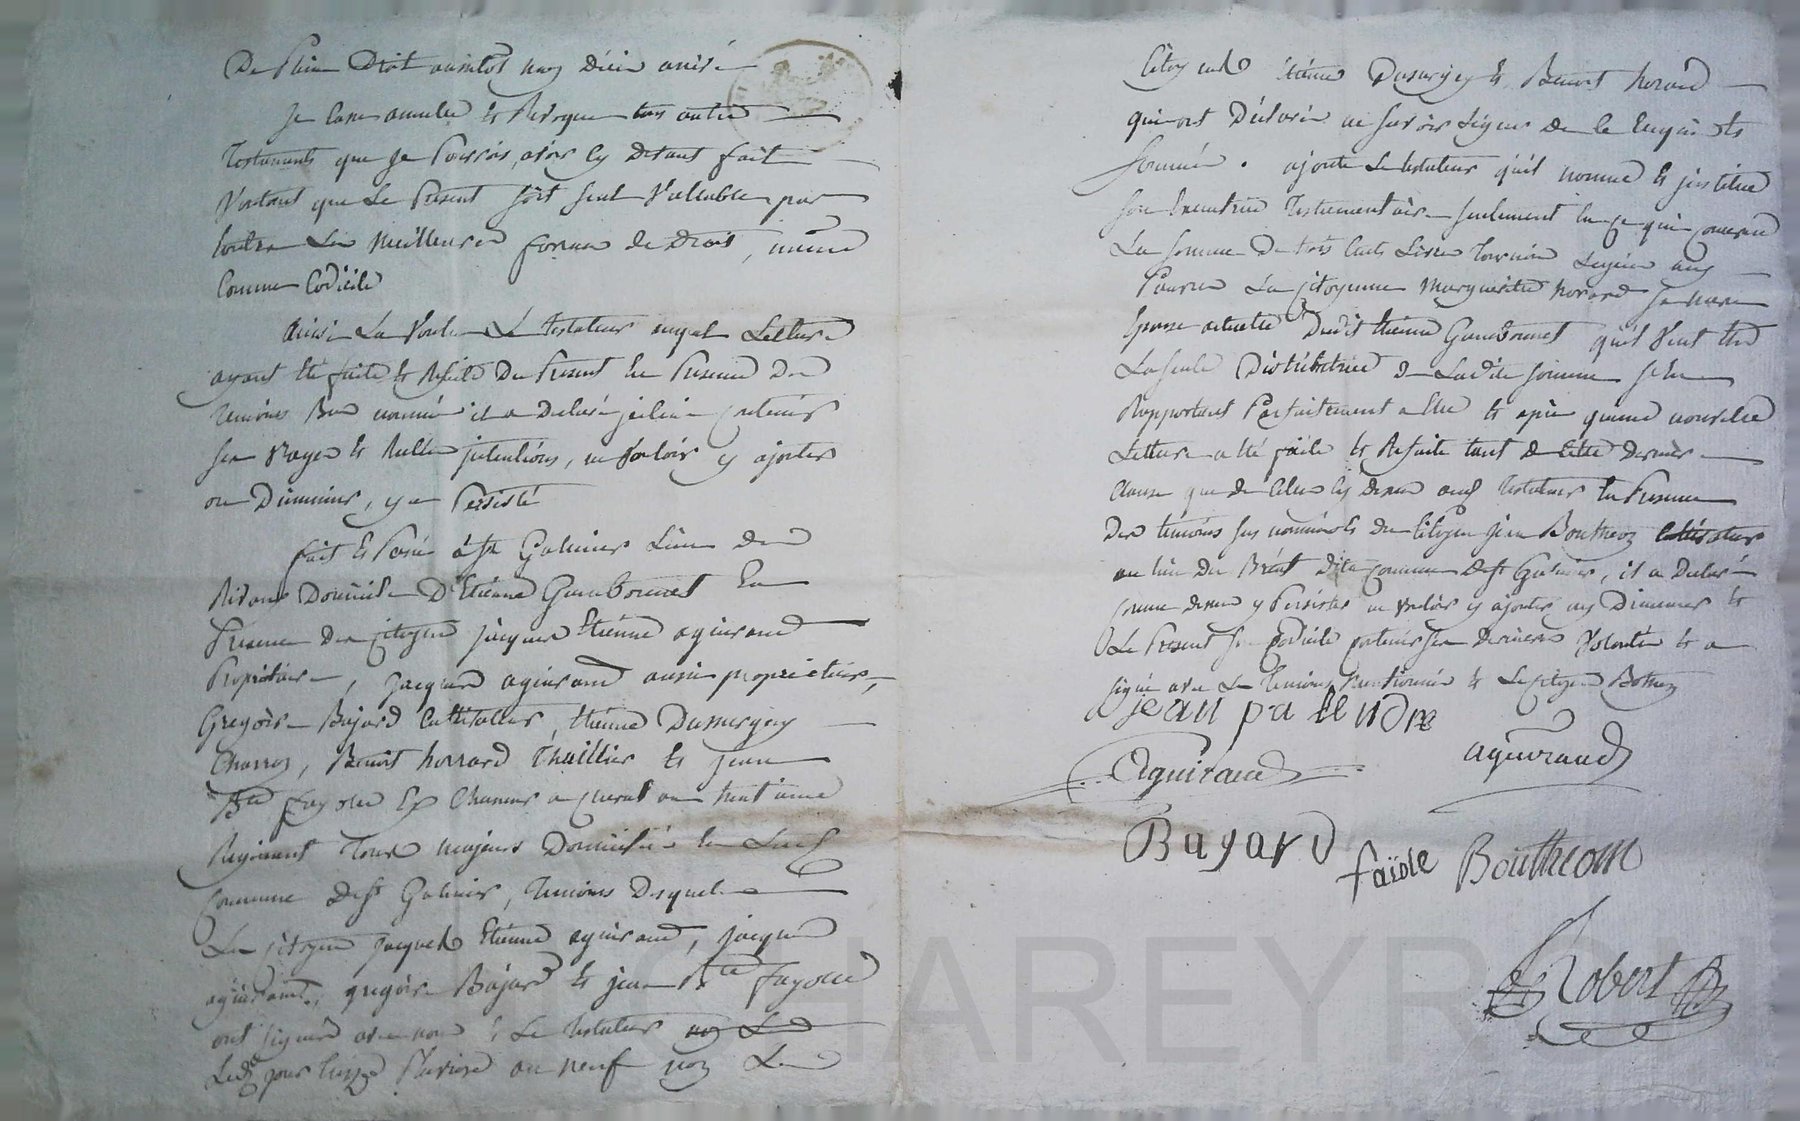 De Plein Droit aussitôt mon décès arivé
Je Casse annulle & Revoque tous autre
Testaments que Je Pourrois avoir cy devant fait
Voulant que Le Present soit seul Vallable par
toutes Les Meilleures formes de droit, même
Comme Codicile
Ainsi La Voulu Le testateur auquel Lecture
ayant été faite & Refaite Du Present En Presence Des
temoins Bas nommés il a Declaré icelui contenir
ses Vrayes & intentions, ne Vouloir y ajouter
ou Diminuer, y a Persisté
fait & Passé à St Galmier Lieu des
Rivaus Domicile D'Etienne Gambonnet En
Presence des Citoyens jacques Etienne aguiraud
Propriétaire, jacques aguiraud aussi proprietaire,
Gregoire Bajard Cultivateur, Etienne Dumurgey
Charron, Benoit horrard thuillier & jean
Bte fayolle Ex Chasseur a Cheval au
Regiment tous majeurs Domiciliés en Lad
Commune de St Galmier, temoins Desquels
Les Citoyens jacques Etienne aguiraud, jacques
aguiraud, gregoire Bajard & jean Bte Fayolle
ont signé avec nous & Le testateur
Led jour Pluviose an neuf non Les
Citoyens Etienne Dumurgey & Benoit horard
qui ont Déclaré ne savoir signer de ce Enquis &
Sommés. ajoute Le testateur qu'il nomme & institue
son Executrice Testamentaire seulement En ce qui concerne
La somme De trois Cents Livres Tournois Leguée aux
Pauvres La Citoyenne Marguerite horard sa
Epouse actuelle Dudit Etienne Gambonnet qu'il Veut être
La seule Distributrice De Ladite somme s'en
Rapportant Parfaitement a Elle & après que nouvelle
Lecture a été faite & Refaite tant de Cette Derniere
Clause que de Celles cy dessus aud testateur En Presence
Des temoins sus nommés & du Citoyen jean Boutheon Cultivateur
au Lieu du dite Commune de St Galmier, il a Declaré
comme dessus y Persister ne vouloir y ajouter ny Diminuer &
Le Present contenir ses dernieres Volontés & a
signé avec Les temoins & Le Citoyen Botheon
jean pa
Aguiraud aguiraud
Bayard faiole Boutheon
Robert
CHAREYRON